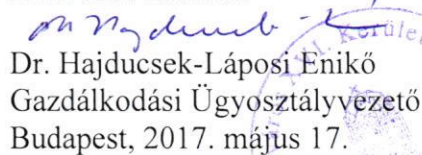 Dr. Hajducsek-Láposi Enikő
Gazdálkodási Ügyosztályvezető
Budapest, 2017. május 17.